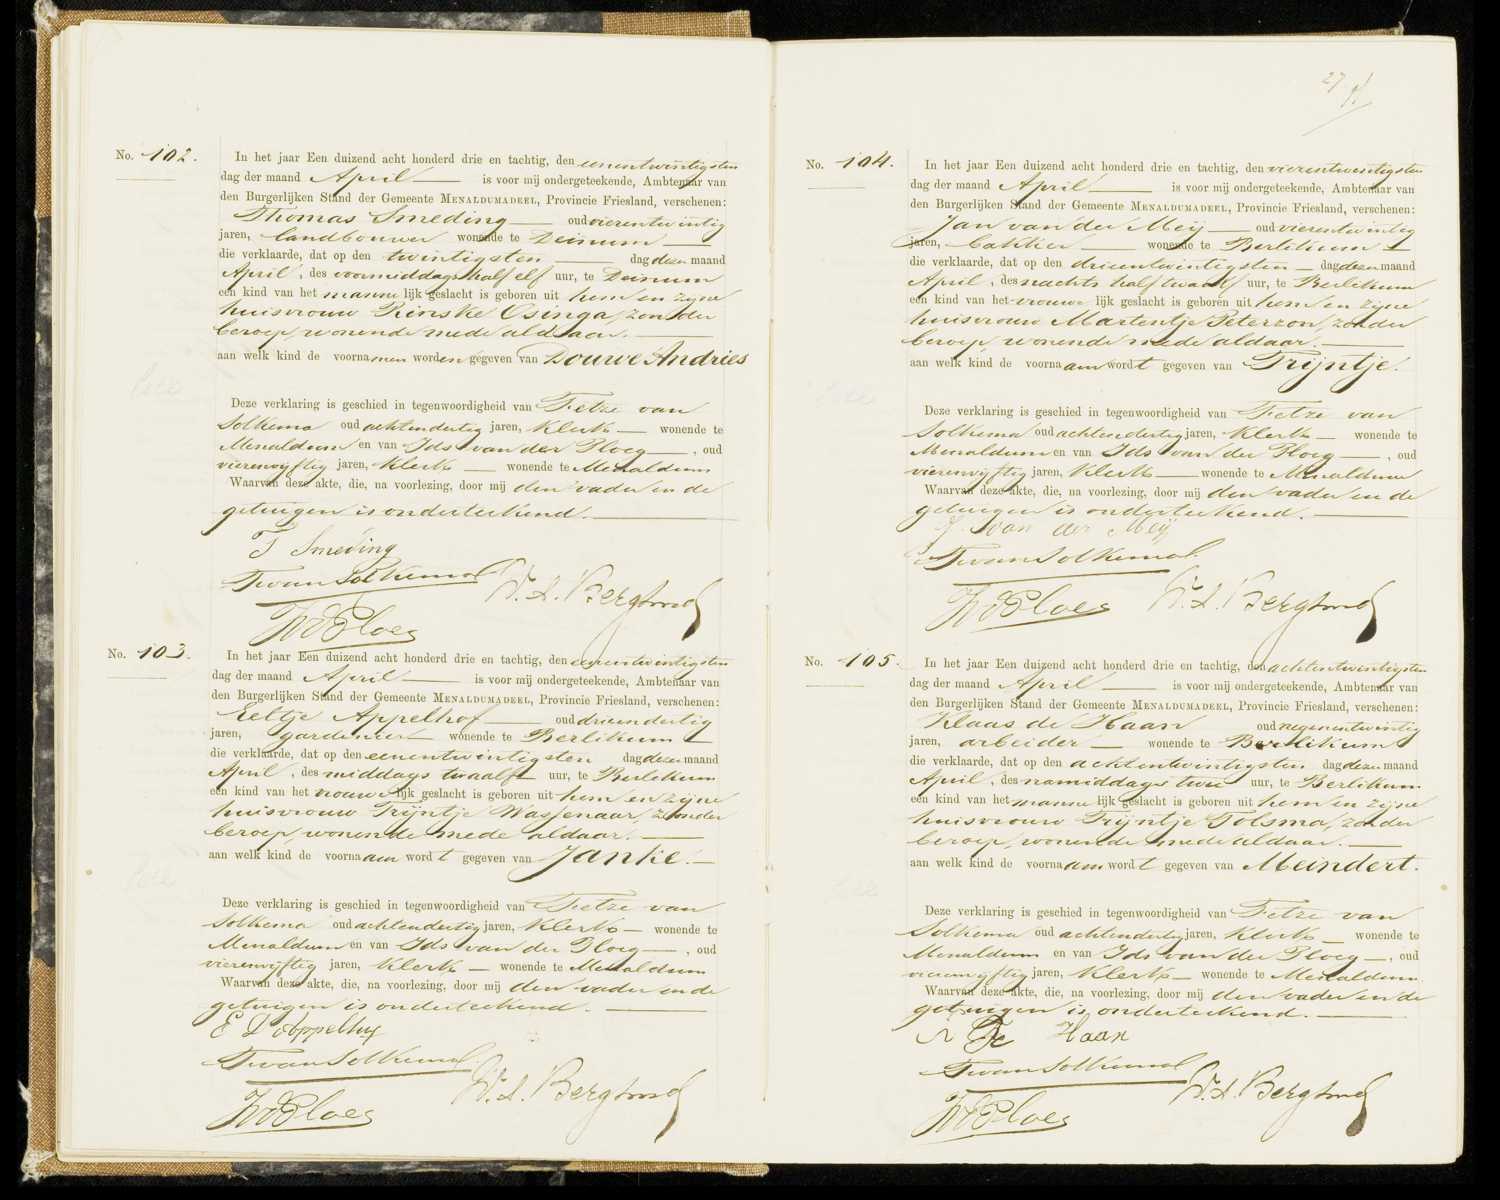 No. 102.
In het jaar Een duizend acht honderd drie en tachtig, den eenentwintigsten
dag der maand April — is voor mij ondergeteekende, Ambtenaar van
den Burgerlijken Stand der Gemeente MENALDUMADEEL, Provincie Friesland, verschenen:
Thomas Smeding — oud vierentwintig
jaren, landbouwer wonende te Deinum —
die verklaarde, dat op den twintigsten — dag dezer maand
April, des voormiddags half elf uur, te Deinum
een kind van het mannelijk geslacht is geboren uit hem en zijne
huisvrouw Rinske Osinga, zonder
beroep, wonende mede aldaar. —
aan welk kind de voornamen worden gegeven van Douwe Andries
Deze verklaring is geschied in tegenwoordigheid van Fetze van
Solkema oud achtendertig jaren, Klerk — wonende te
Menaldum en van Ids van der Ploeg —, oud
vierenvijftig jaren, Klerk — wonende te Menaldum
Waarvan deze akte, die, na voorlezing, door mij den vader en de
getuigen is onderteekend. —
T Smeding
F van Solkema
W. A. Bergsma
I v d Ploeg
No. 103.
In het jaar Een duizend acht honderd drie en tachtig, den eenentwintigsten
dag der maand April — is voor mij ondergeteekende, Ambtenaar van
den Burgerlijken Stand der Gemeente MENALDUMADEEL, Provincie Friesland, verschenen:
Eeltje Appelhof — oud drieendertig
jaren, gardenier wonende te Berlikum —
die verklaarde, dat op den eenentwintigsten dag dezer maand
April, des middags twaalf uur, te Berlikum
een kind van het vrouwelijk geslacht is geboren uit hem en zijne
huisvrouw Trijntje Wassenaar, zonder
beroep, wonende mede aldaar. —
aan welk kind de voornaam wordt gegeven van Janke. —
Deze verklaring is geschied in tegenwoordigheid van Fetze van
Solkema oud achtendertig jaren, Klerk — wonende te
Menaldum en van Ids van der Ploeg —, oud
vierenvijftig jaren, Klerk — wonende te Menaldum
Waarvan deze akte, die, na voorlezing, door mij den vader en de
getuigen is onderteekend. —
F van Solkema
W. A. Bergsma
I v d Ploeg
27
No. 104.
In het jaar Een duizend acht honderd drie en tachtig, den vierentwintigsten
dag der maand April — is voor mij ondergeteekende, Ambtenaar van
den Burgerlijken Stand der Gemeente MENALDUMADEEL, Provincie Friesland, verschenen:
Jan van der Meij — oud vierentwintig
jaren, bakker — wonende te Berlikum —
die verklaarde, dat op den drieentwintigsten — dag dezer maand
April, des nachts half twaalf uur, te Berlikum
een kind van het vrouwelijk geslacht is geboren uit hem en zijne
huisvrouw Martentje Peterzon, zonder
beroep, wonende mede aldaar. —
aan welk kind de voornaam wordt gegeven van Trijntje.
Deze verklaring is geschied in tegenwoordigheid van Fetze van
Solkema oud achtendertig jaren, Klerk — wonende te
Menaldum en van Ids van der Ploeg —, oud
vierenvijftig jaren, Klerk — wonende te Menaldum
Waarvan deze akte, die, na voorlezing, door mij den vader en de
getuigen is onderteekend. —
J. van der Meij
F van Solkema
W. A. Bergsma
I v d Ploeg
No. 105.
In het jaar Een duizend acht honderd drie en tachtig, den achtentwintigsten
dag der maand April — is voor mij ondergeteekende, Ambtenaar van
den Burgerlijken Stand der Gemeente MENALDUMADEEL, Provincie Friesland, verschenen:
Klaas de Haan oud negenentwintig
jaren, arbeider — wonende te Berlikum
die verklaarde, dat op den achtentwintigsten dag dezer maand
April, des namiddags twee uur, te Berlikum
een kind van het mannelijk geslacht is geboren uit hem en zijne
huisvrouw Trijntje Tolsma, zonder
beroep, wonende mede aldaar. —
aan welk kind de voornaam wordt gegeven van Meindert.
Deze verklaring is geschied in tegenwoordigheid van Fetze van
Solkema oud achtendertig jaren, Klerk — wonende te
Menaldum en van Ids van der Ploeg —, oud
vierenvijftig jaren, Klerk — wonende te Menaldum
Waarvan deze akte, die, na voorlezing, door mij den vader en de
getuigen is onderteekend. —
de Haan
F van Solkema
W. A. Bergsma
I v d Ploeg